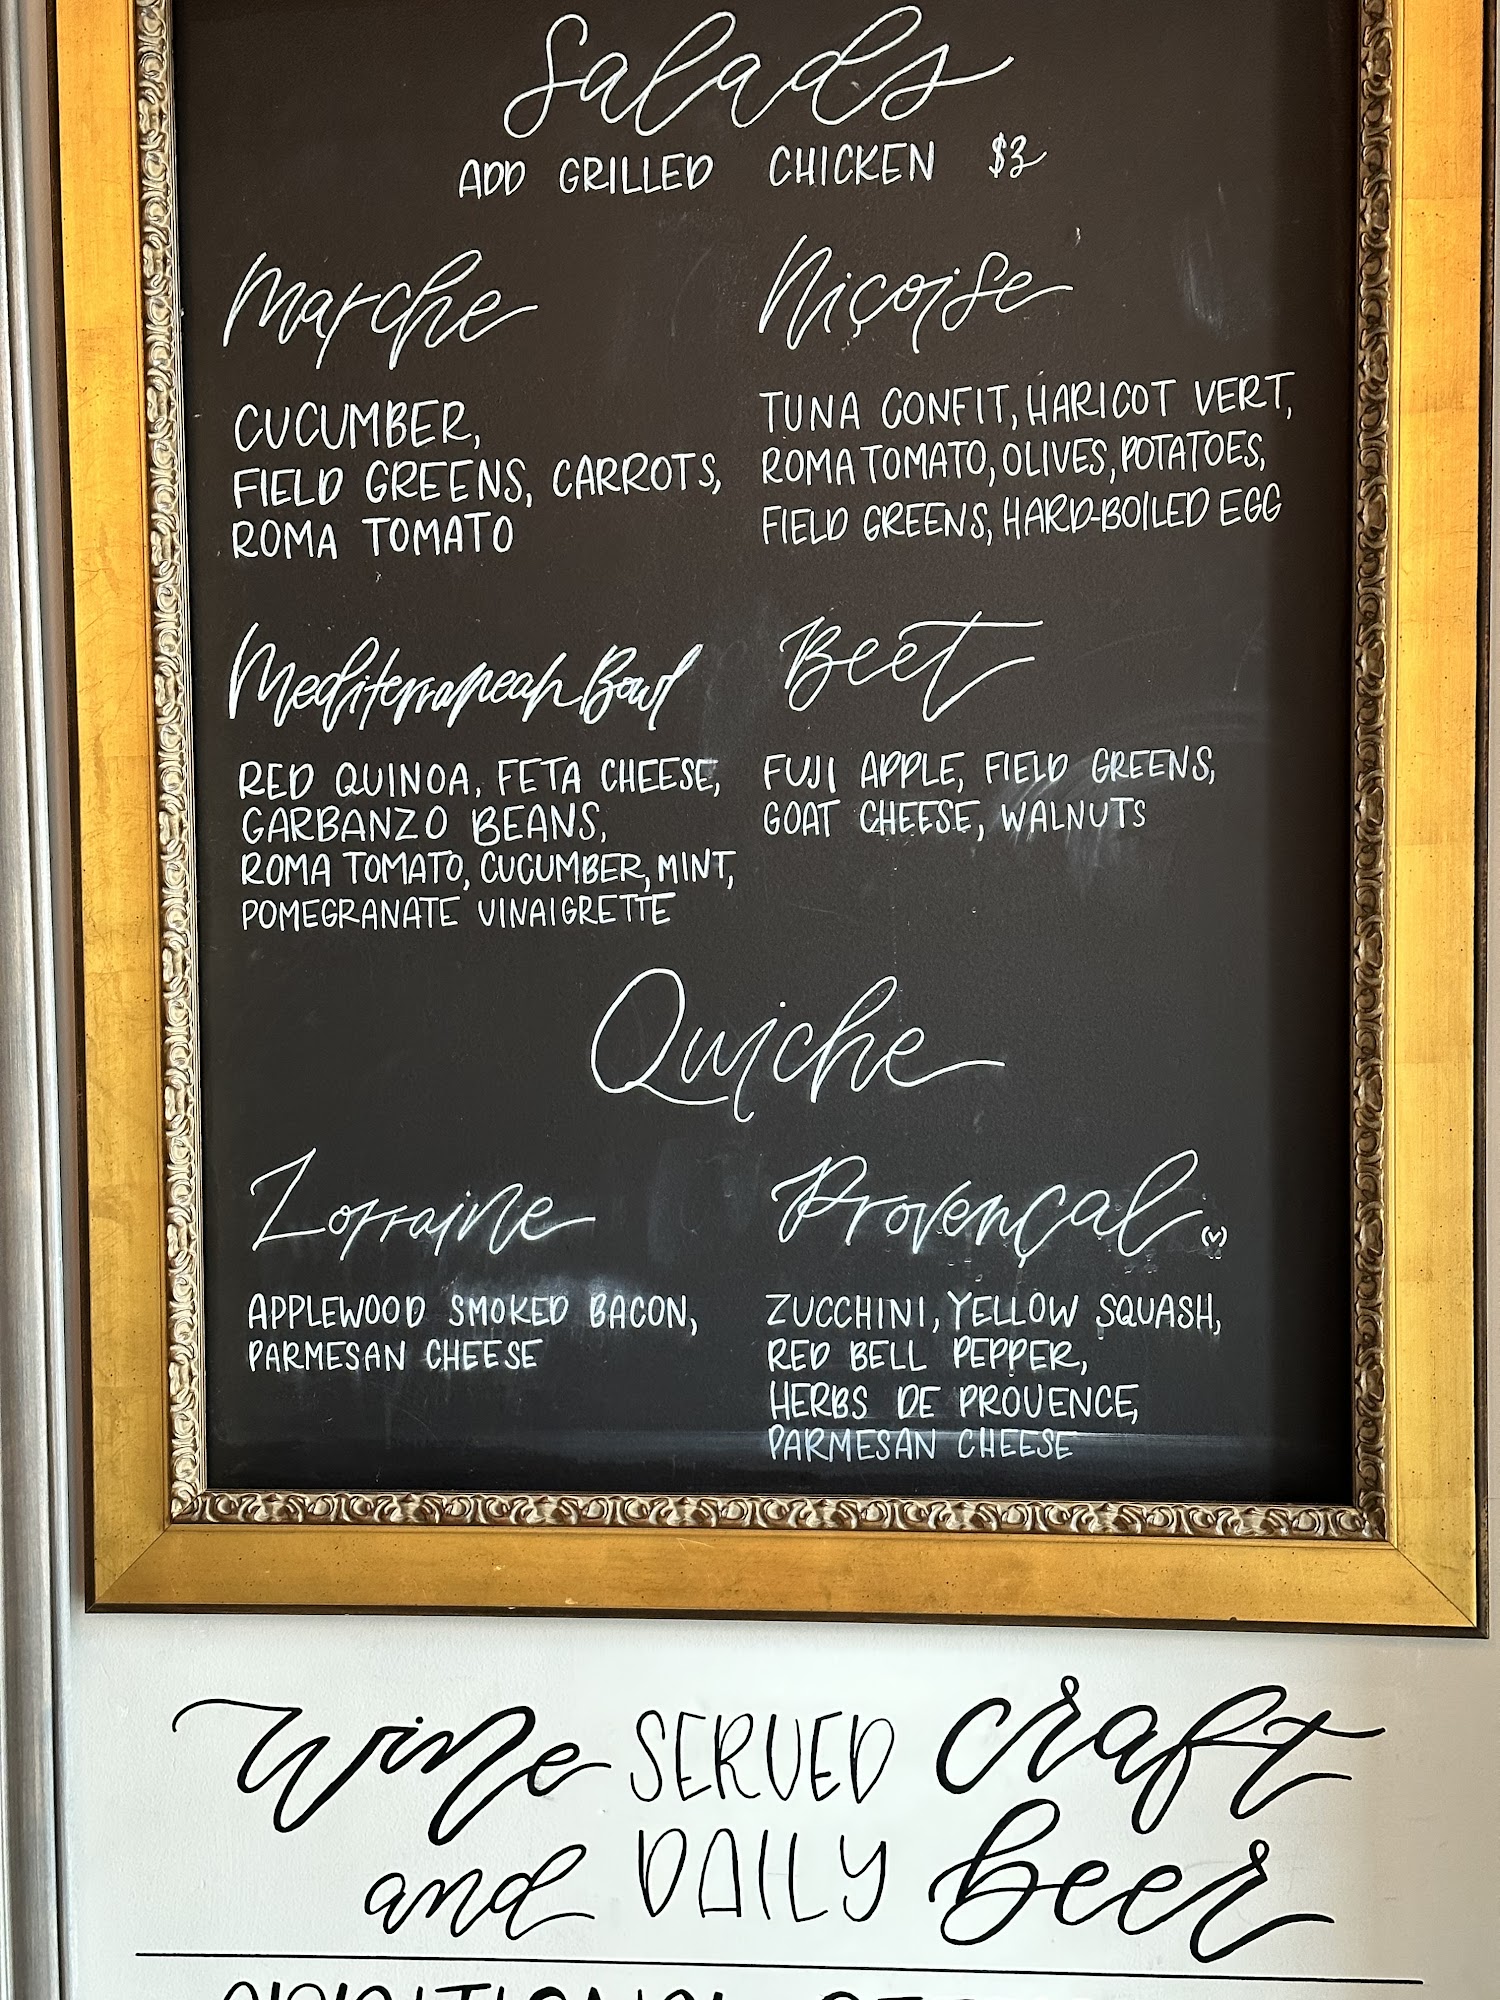 Salads
ADD GRILLED CHICKEN $3
Marche
CUCUMBER,
FIELD GREENS, CARROTS,
ROMA TOMATO
Niçoise
TUNA CONFIT, HARICOT VERT,
ROMA TOMATO, OLIVES, POTATOES,
FIELD GREENS, HARD-BOILED EGG
Mediterranean Bowl
RED QUINOA, FETA CHEESE,
GARBANZO BEANS,
ROMA TOMATO, CUCUMBER, MINT,
POMEGRANATE VINAIGRETTE
Beet
FUJI APPLE, FIELD GREENS,
GOAT CHEESE, WALNUTS
Quiche
Lorraine
APPLEWOOD SMOKED BACON,
PARMESAN CHEESE
Provençal (V)
ZUCCHINI, YELLOW SQUASH,
RED BELL PEPPER,
HERBS DE PROVENCE,
PARMESAN CHEESE
wine SERVED craft
and DAILY beer